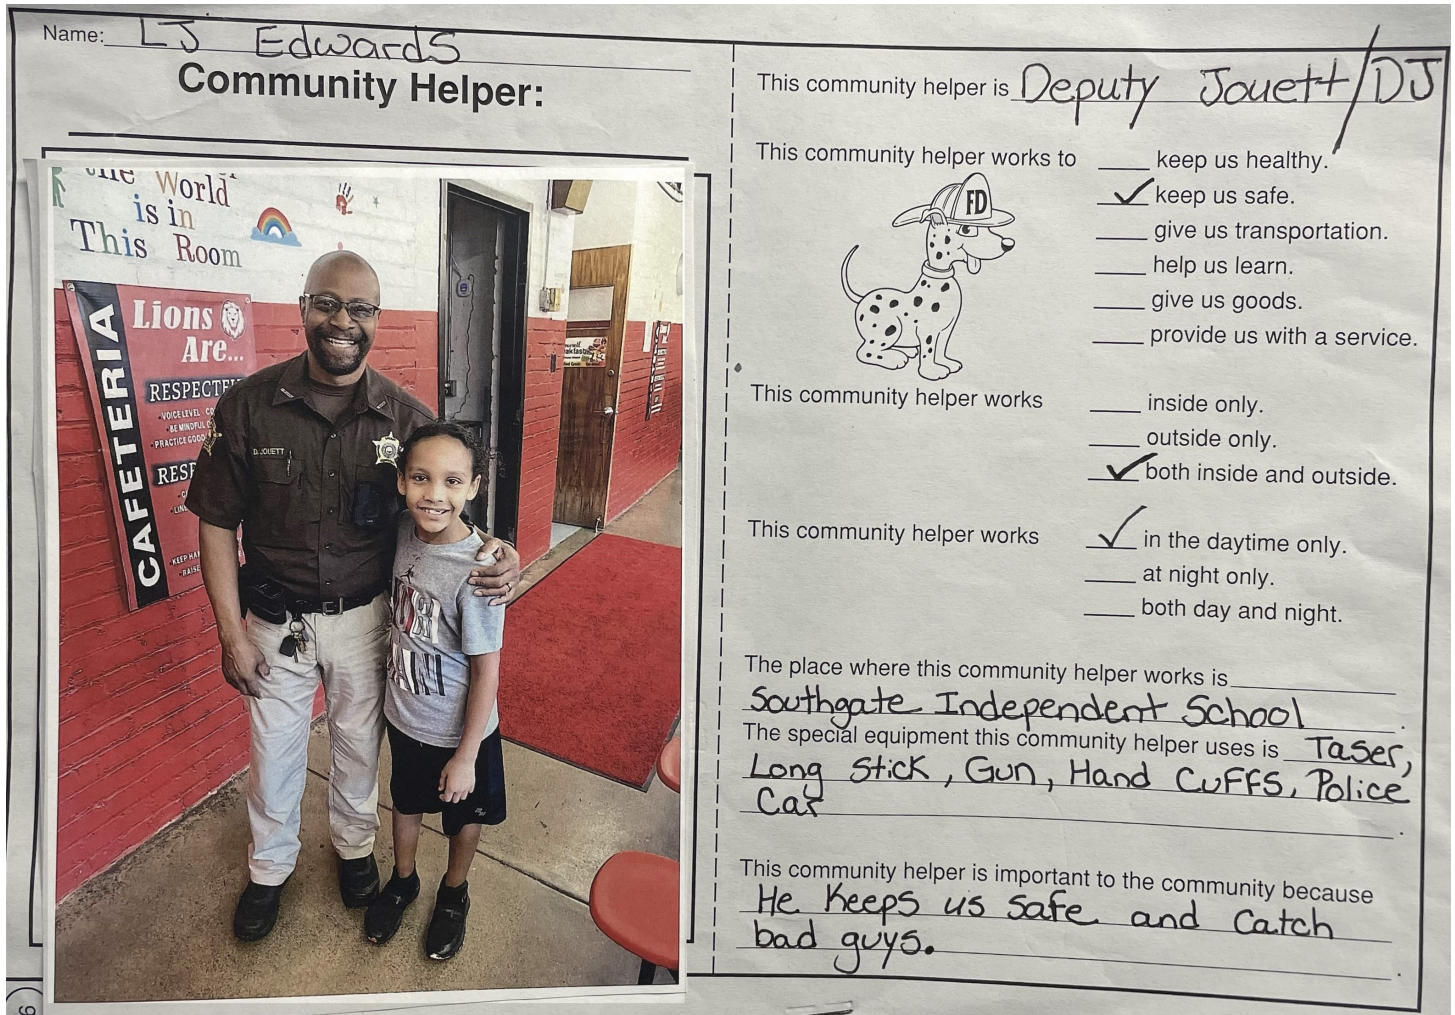 Name: LJ Edwards
Community Helper:
the World
is in
This Room
CAFETERIA
Lions
Are...
RESPECTFU
VOICE LEVEL
BE MINDFUL
PRACTICE GOOD
RESP
KEEP HA
RAISE
D. JOUETT
This community helper is Deputy Jouett/DJ
This community helper works to
keep us healthy.
✓ keep us safe.
give us transportation.
help us learn.
give us goods.
provide us with a service.
FD
This community helper works
inside only.
outside only.
✓ both inside and outside.
This community helper works
✓ in the daytime only.
at night only.
both day and night.
The place where this community helper works is
Southgate Independent School.
The special equipment this community helper uses is Taser,
Long Stick, Gun, Hand Cuffs, Police
Car.
This community helper is important to the community because
He Keeps us safe and Catch
bad guys.